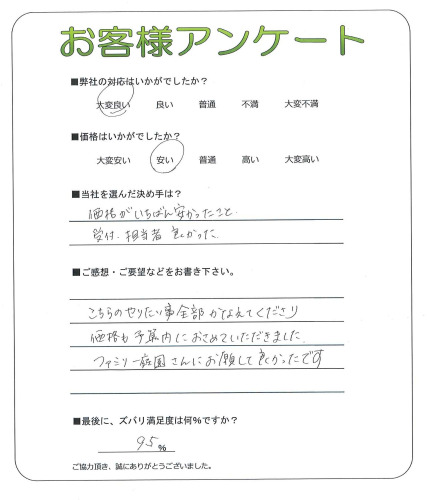 お客様アンケート
■弊社の対応はいかがでしたか？
大変良い 良い 普通 不満 大変不満
■価格はいかがでしたか？
大変安い 安い 普通 高い 大変高い
■当社を選んだ決め手は？
価格がいちばん安かったこと
受付、担当者 良かった
■ご感想・ご要望などをお書き下さい。
こちらのやりたい事全部かなえてくださり
価格も予算内におさめていただきました
ファミリー庭園さんにお願して良かったです
■最後に、ズバリ満足度は何%ですか？
95%
ご協力頂き、誠にありがとうございました。